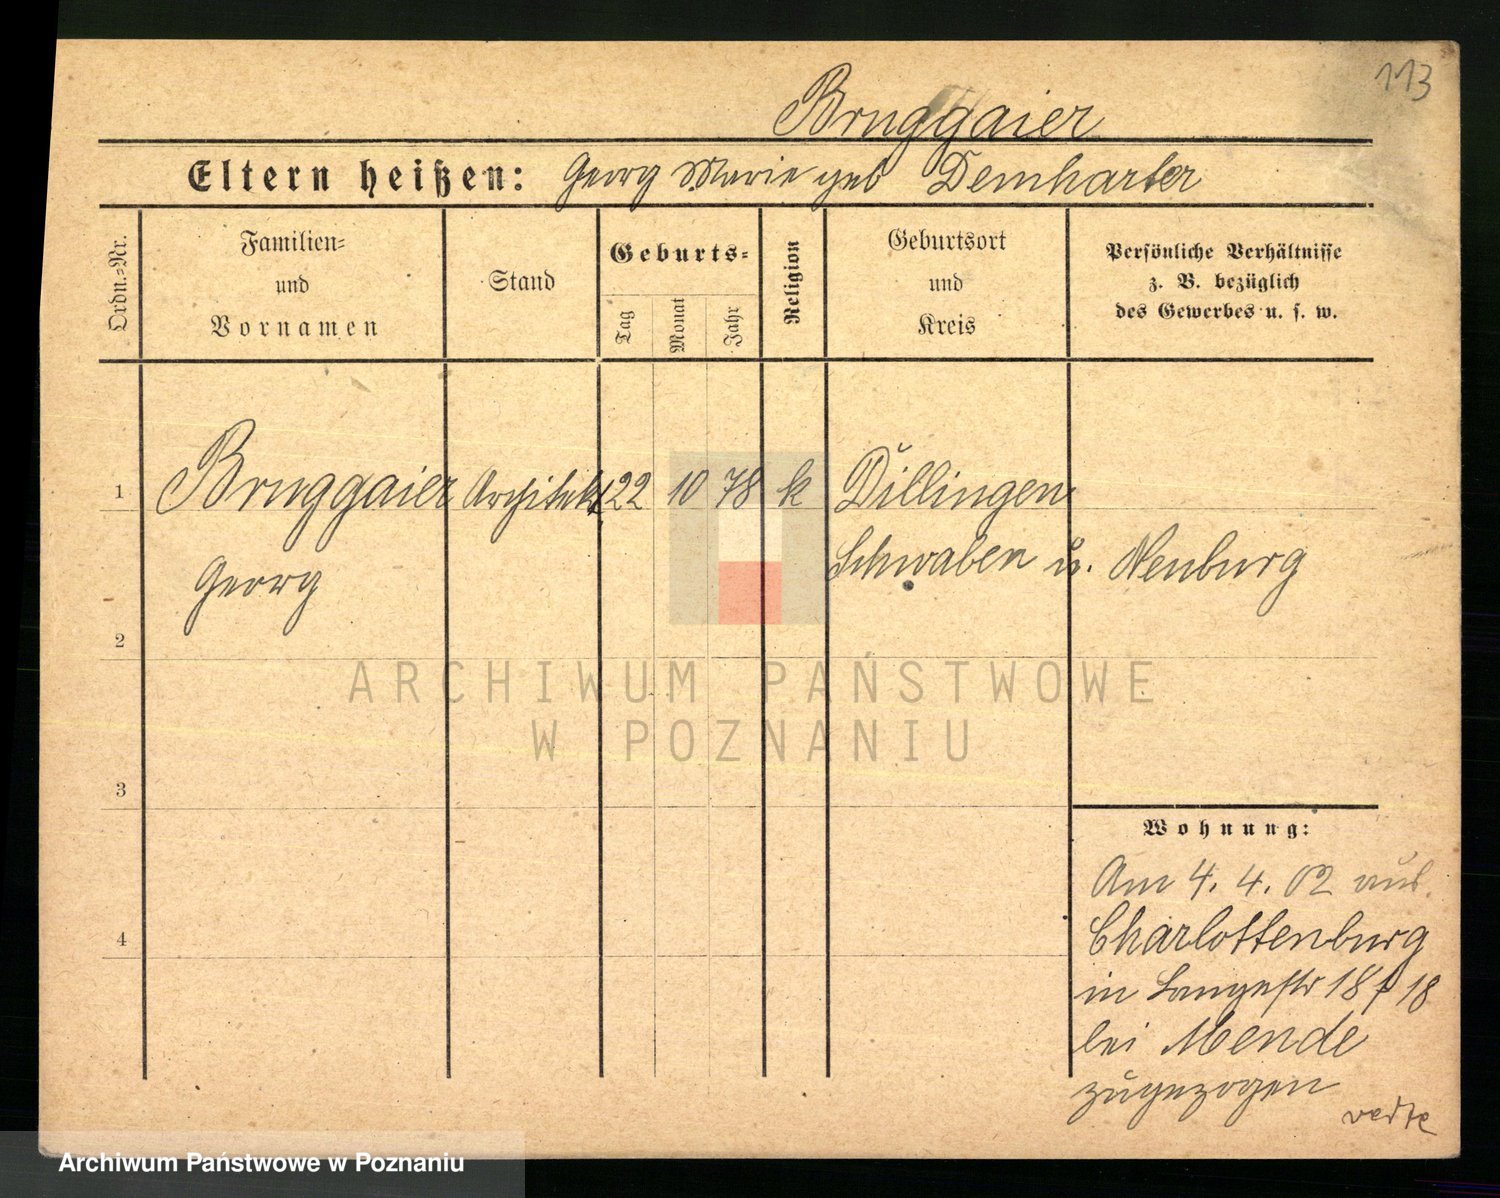 113
Bruggaier
Eltern heißen: Georg Marie geb Demharter
Ordn.=Nr.
Familien=
und
Vornamen
Stand
Geburts=
Tag
Monat
Jahr
Religion
Geburtsort
und
Kreis
Persönliche Verhältnisse
z. B. bezüglich
des Gewerbes u. s. w.
1 Bruggaier Architekt 22 10 78 k Dillingen
Schwaben u. Neuburg
Georg
2
3
4
ARCHIWUM PAŃSTWOWE
W POZNANIU
Wohnung:
Am 4. 4. 02 aus
Charlottenburg
in Langestr 18 18
bei Mende
zugezogen
verte
Archiwum Państwowe w Poznaniu